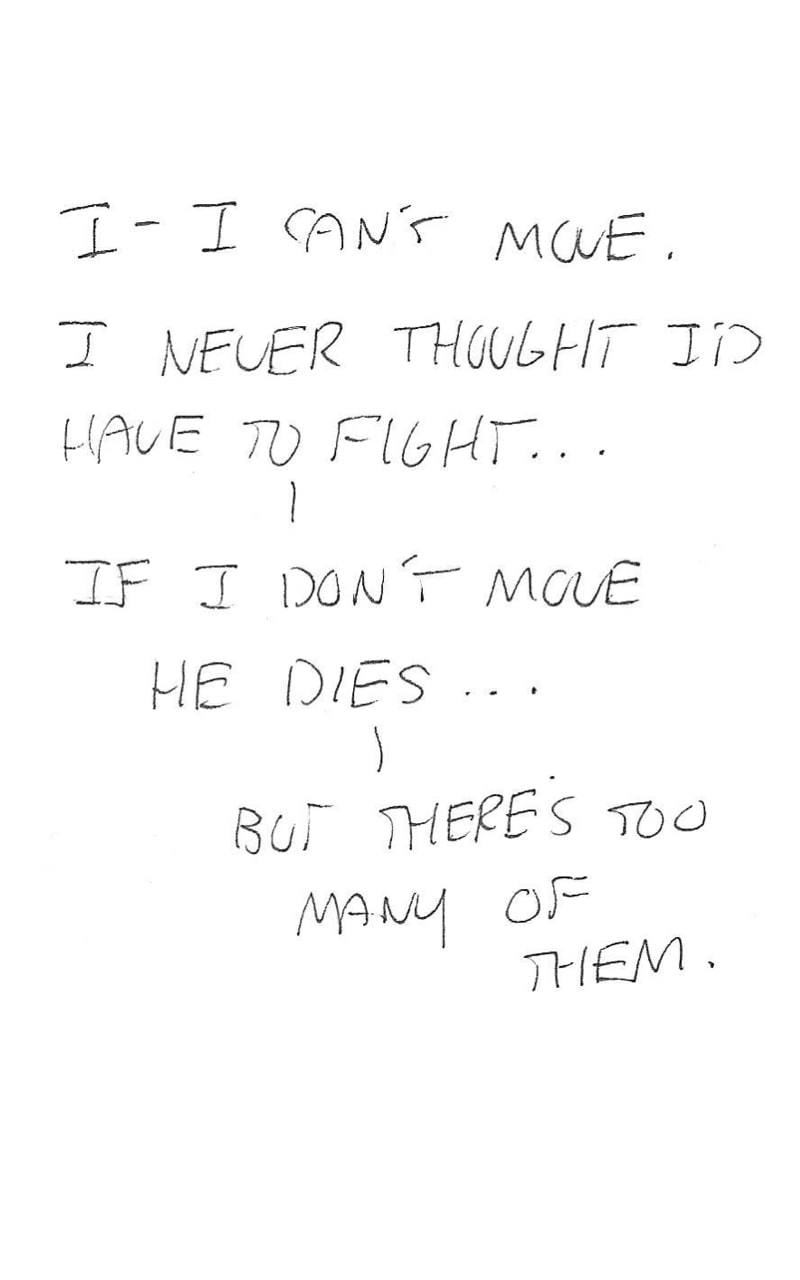 I-I CAN'T MOVE.
I NEVER THOUGHT I'D
HAVE TO FIGHT...
IF I DON'T MOVE
HE DIES...
BUT THERE'S TOO
MANY OF
THEM.